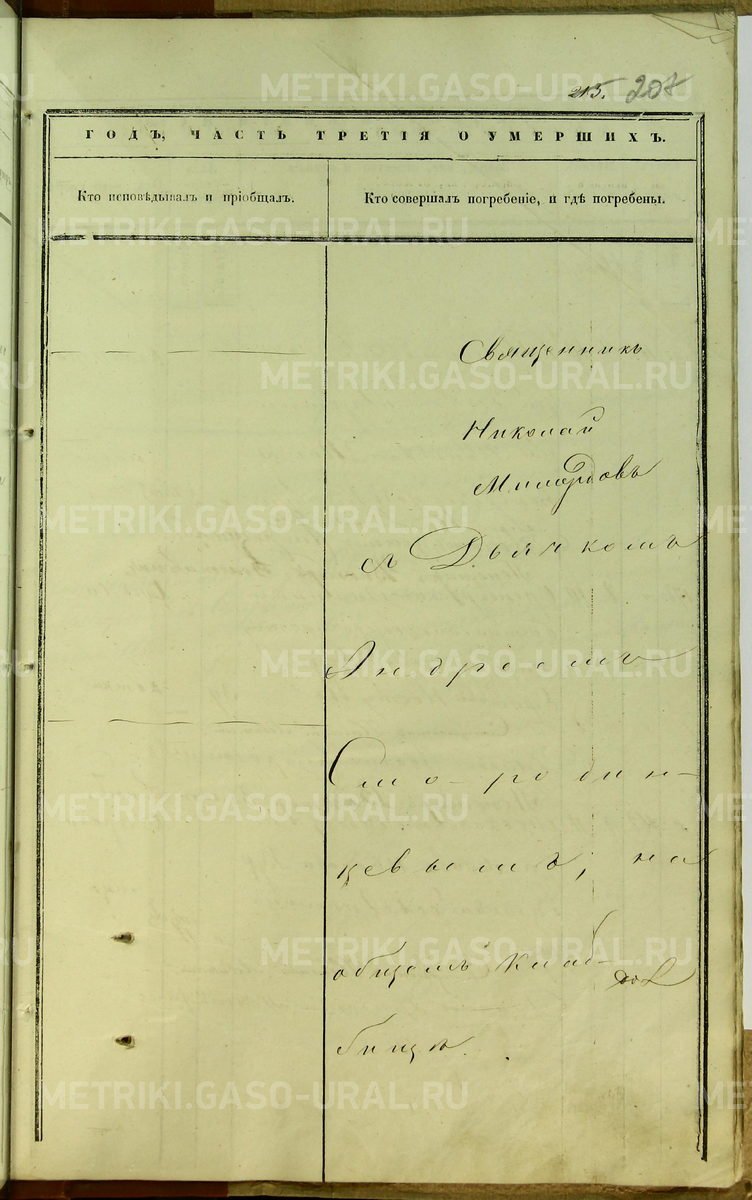 215. 207
ГОДЪ, ЧАСТЬ ТРЕТІЯ О УМЕРШИХЪ.
Кто исповѣдывалъ и пріобщалъ.
Кто совершалъ погребеніе, и гдѣ погребены.
Священникъ
Николай
Милордовъ
съ Дьячкомъ
Андреемъ
Смо-родин-
цевымъ, на
общемъ клад-
бищѣ.
METRIKI.GASO-URAL.RU